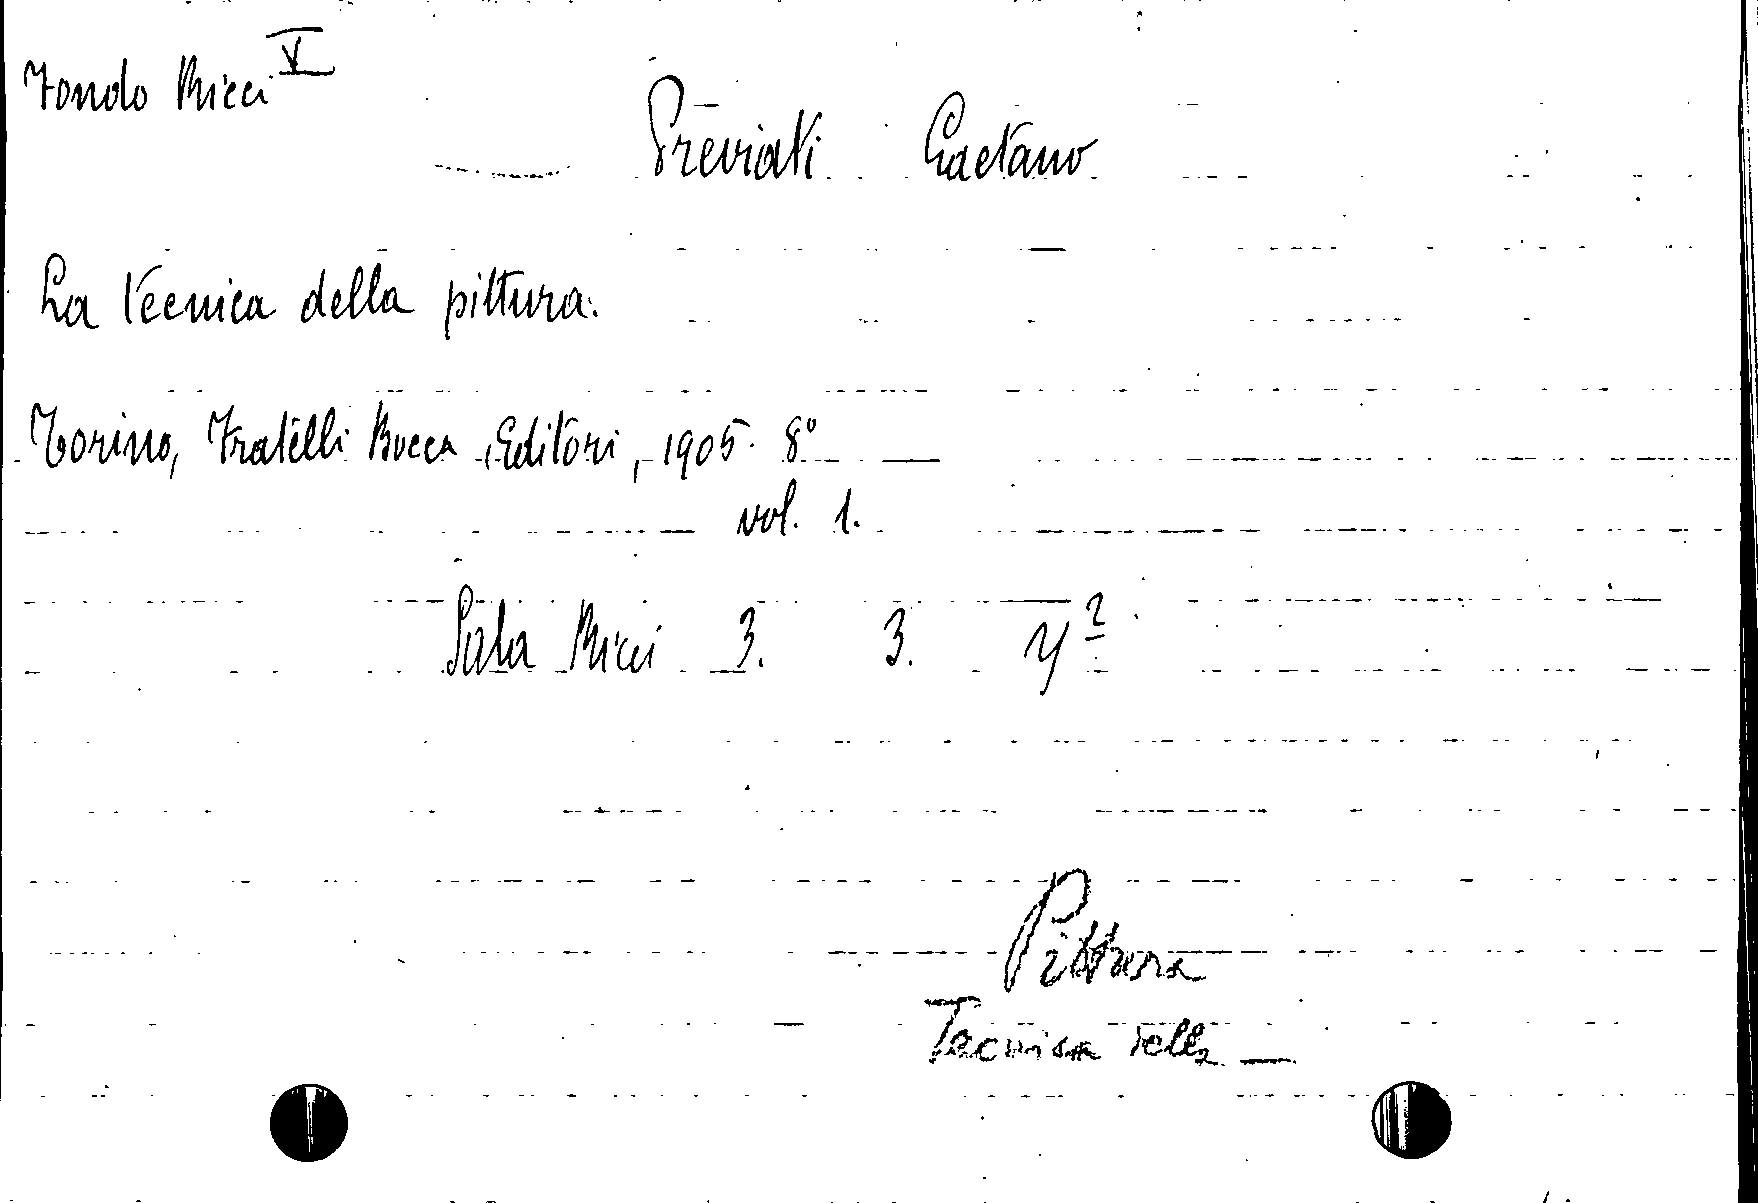 Fondo Ricci V
Previati Gaetano
La tecnica della pittura.
Torino, Fratelli Bocca, Editori, 1905. 8°
vol. 1.
Sala Ricci 3. 3. 4²
Pittura
Tecnica della —